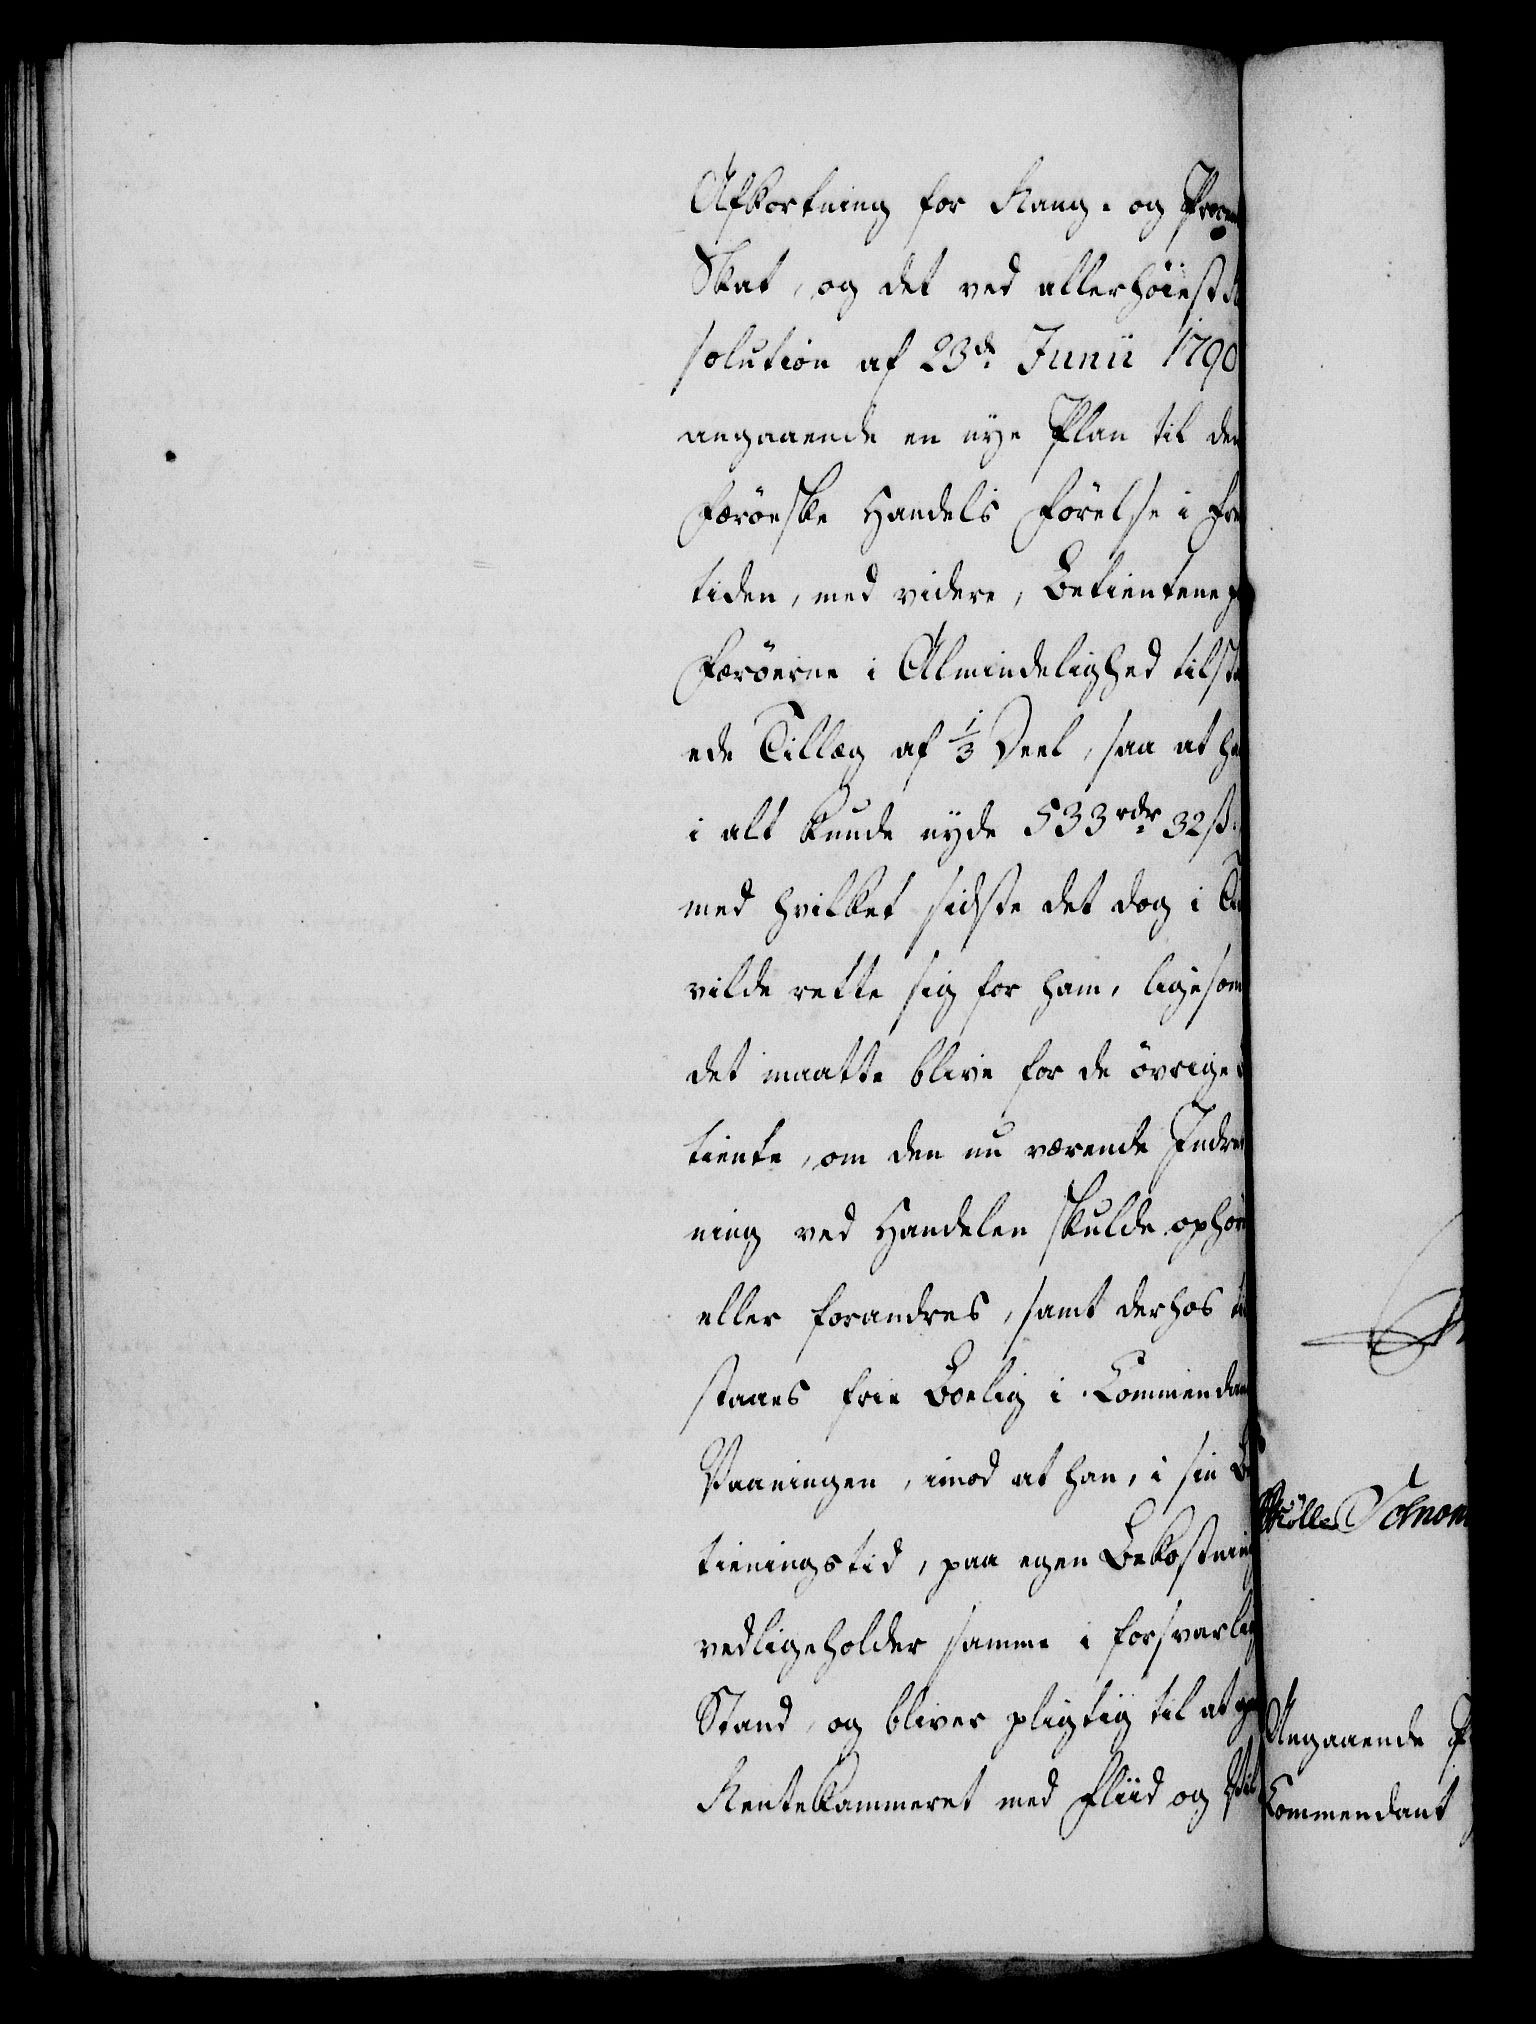 Afkortning for Rang- og Procent
Skat, og det ved allerhøiest Re
solution af 23de Junii 1790
angaaende en nye Plan til den
Færöeske Handels Förelse i Frem
tiden, med videre, Betientene paa
Færöerne i Almindelighed tilsta
ede Tillæg af 1/3 Deel, saa at han
i alt kunde nyde 533 rdr 32 ß.
med hvilket sidste det dog i
vilde rette sig for ham, ligesom
det maatte blive for de övrige
tiente, om den nu værende Indret
ning ved Handelen skulde ophöre
eller forandres, samt derhos til
staaes frie Boelig i Commendant
Vaaningen, imod at han, i sin Be
tieningstid, paa egen Bekostning
vedligeholder samme i forsvarlig
Stand, og bliver pligtig til at gaa
Rentekammeret med Fliid og
Angaaende
Commendant